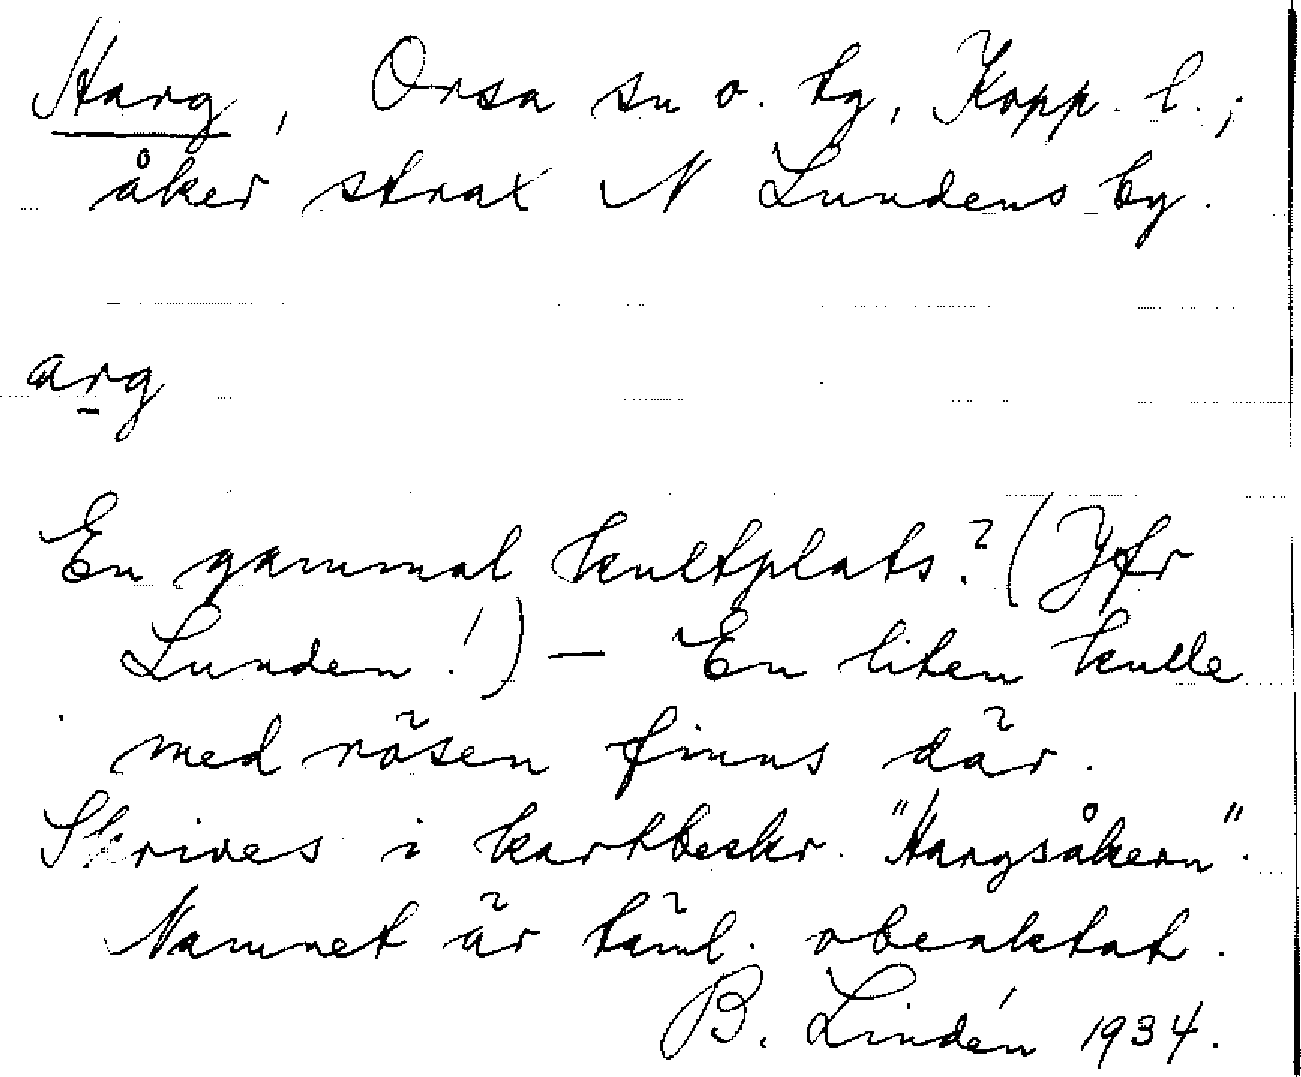 Harg, Orsa sn o. tg, Kopp. l.;
åker strax N Lundens by.
arg
En gammal kultplats? (Jfr
Lunden!) — En liten kulle
med rösen finns där.
Skrives i kartbeskr. "Hargsåkern".
Namnet är täml. obeaktat.
B. Lindén 1934.